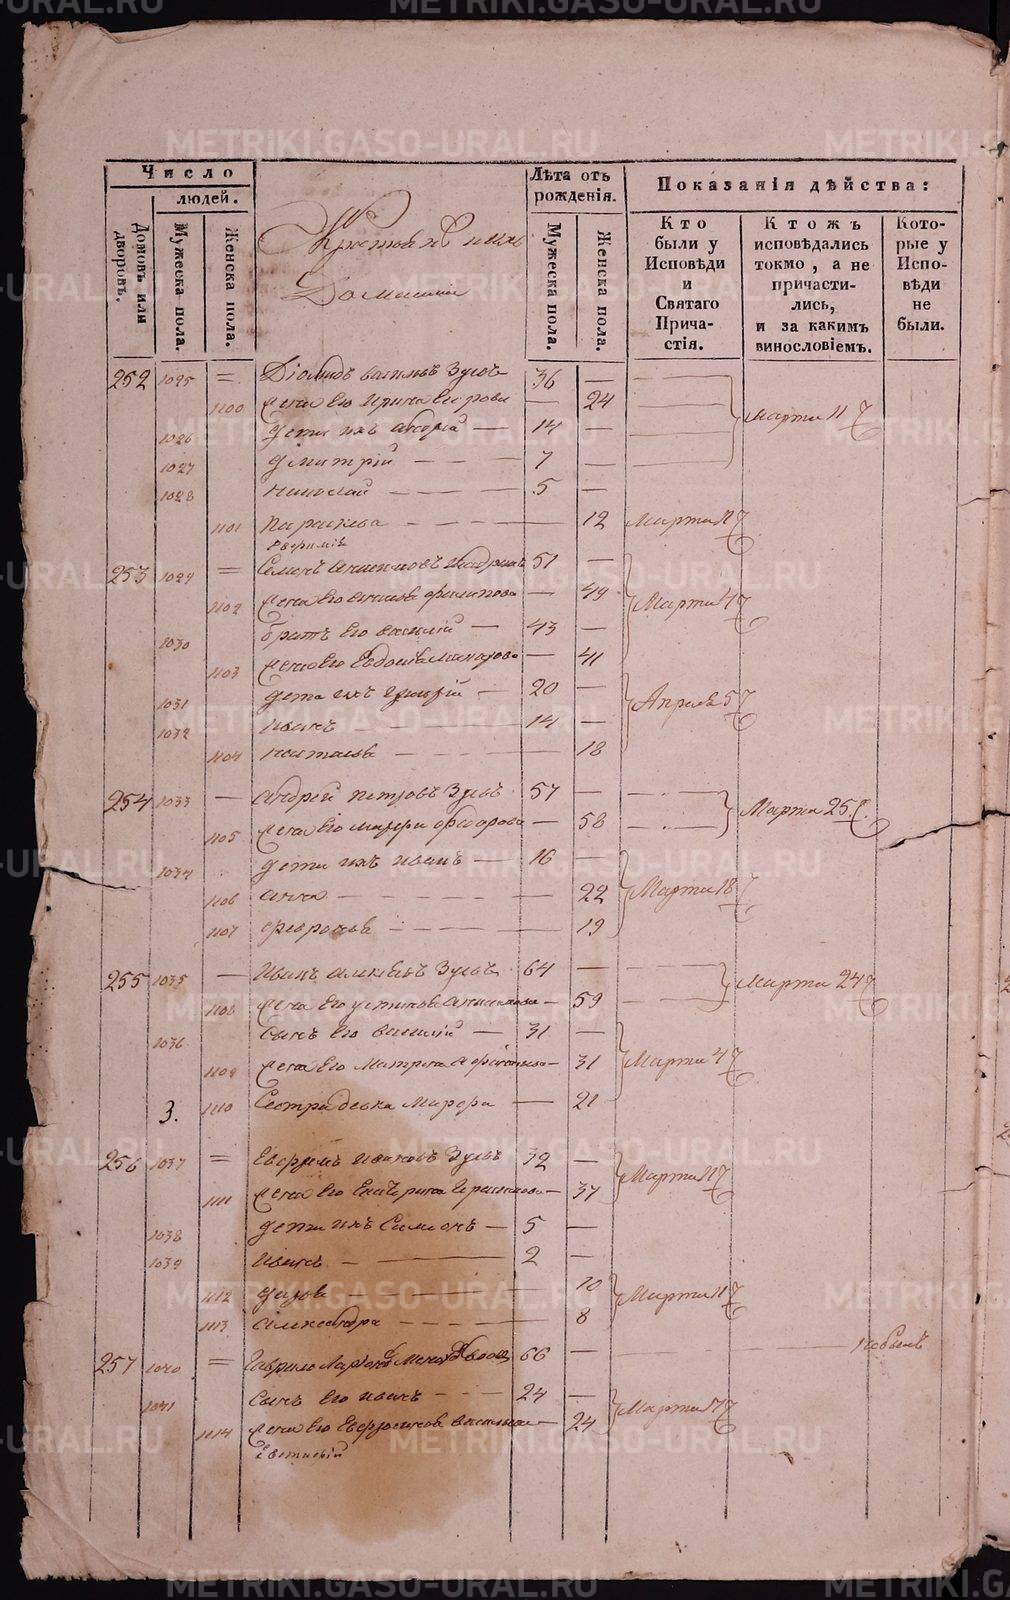 Число
людей.
Домовъ или дворовъ.
Мужеска пола.
Женска пола.
Лѣта отъ рожденія.
Мужеска пола.
Женска пола.
Показанія дѣйства:
Кто были у Исповѣди и Святаго Прича-стія.
Ктожъ исповѣдались токмо, а не причасти-лись, и за какимъ винословіемъ.
Кото-рые у Испо-вѣди не были.
Домашніи
252 1025 = Діомидъ Васильевъ Зуевъ 36 —
1100 жена его Ирина Егорова — 24 Марта 11
1026 дети ихъ Андрей — 14 —
1027 Дмитрій — — — 7 —
1028 Николай — — — 5 —
1101 Параскева — — — 12 Марта 11
253 1029 = Семенъ 51 —
1102 жена его Филипова — 49 Марта 4
1030 братъ его Василій — 43 —
1103 жена его Евдокія Макарова — 41
1031 дети ихъ Григорій — 20 — Апреля 5
1032 Иванъ — — 14 —
1104 Наталья — — — 18
254 1033 — Андрей Петровъ Зуевъ 57 —
1105 жена его Марфа Федорова — 58 Марта 25
1034 дети ихъ Иванъ — 16 —
1106 Анна — — — 22 Марта 18
1107 Февронья — — — 19
255 1035 — Иванъ Алексеевъ Зуевъ 64 —
1108 жена его Устинья — 59 Марта 24
1036 сынъ его Василій — 31 —
1109 жена его Матрена — 31 Марта 4
3. 1110 Сестра девка Марфа — 21
256 1037 = Ефремъ Ивановъ Зуевъ 32 —
1111 жена его Екатерина — 37 Марта 11
1038 дети ихъ Симеонъ — 5 —
1039 Иванъ — — 2 —
1112 — — 10 Марта 11
1113 Александра — — — 8
257 1040 = Гаврило 66 — небылъ
1041 сынъ его Иванъ — — 24 —
1114 жена его Ефросинья — 24 Марта
METRIKI.GASO-URAL.RU